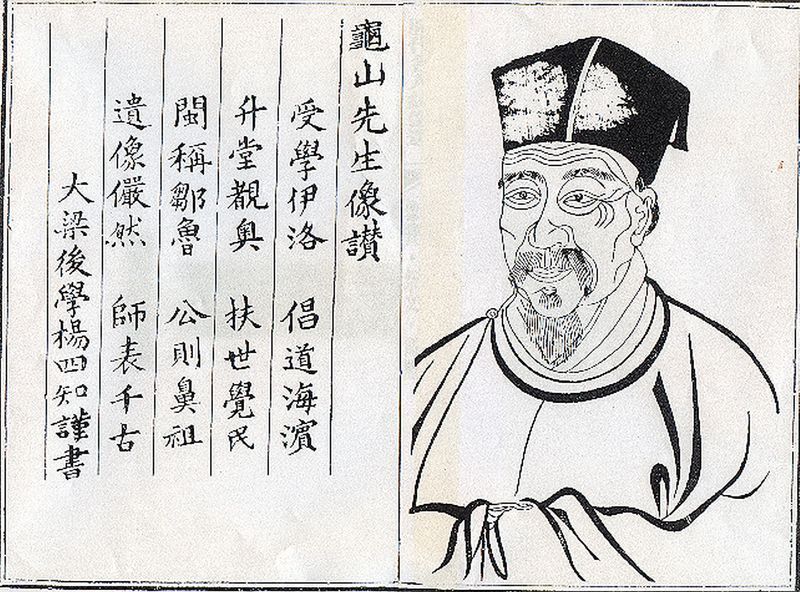 龜山先生像讃
受學伊洛 倡道海濵
升堂覩奥 扶世覺民
閩稱鄒魯 公則鼻祖
遺像儼然 師表千古
大梁後學楊四知謹書